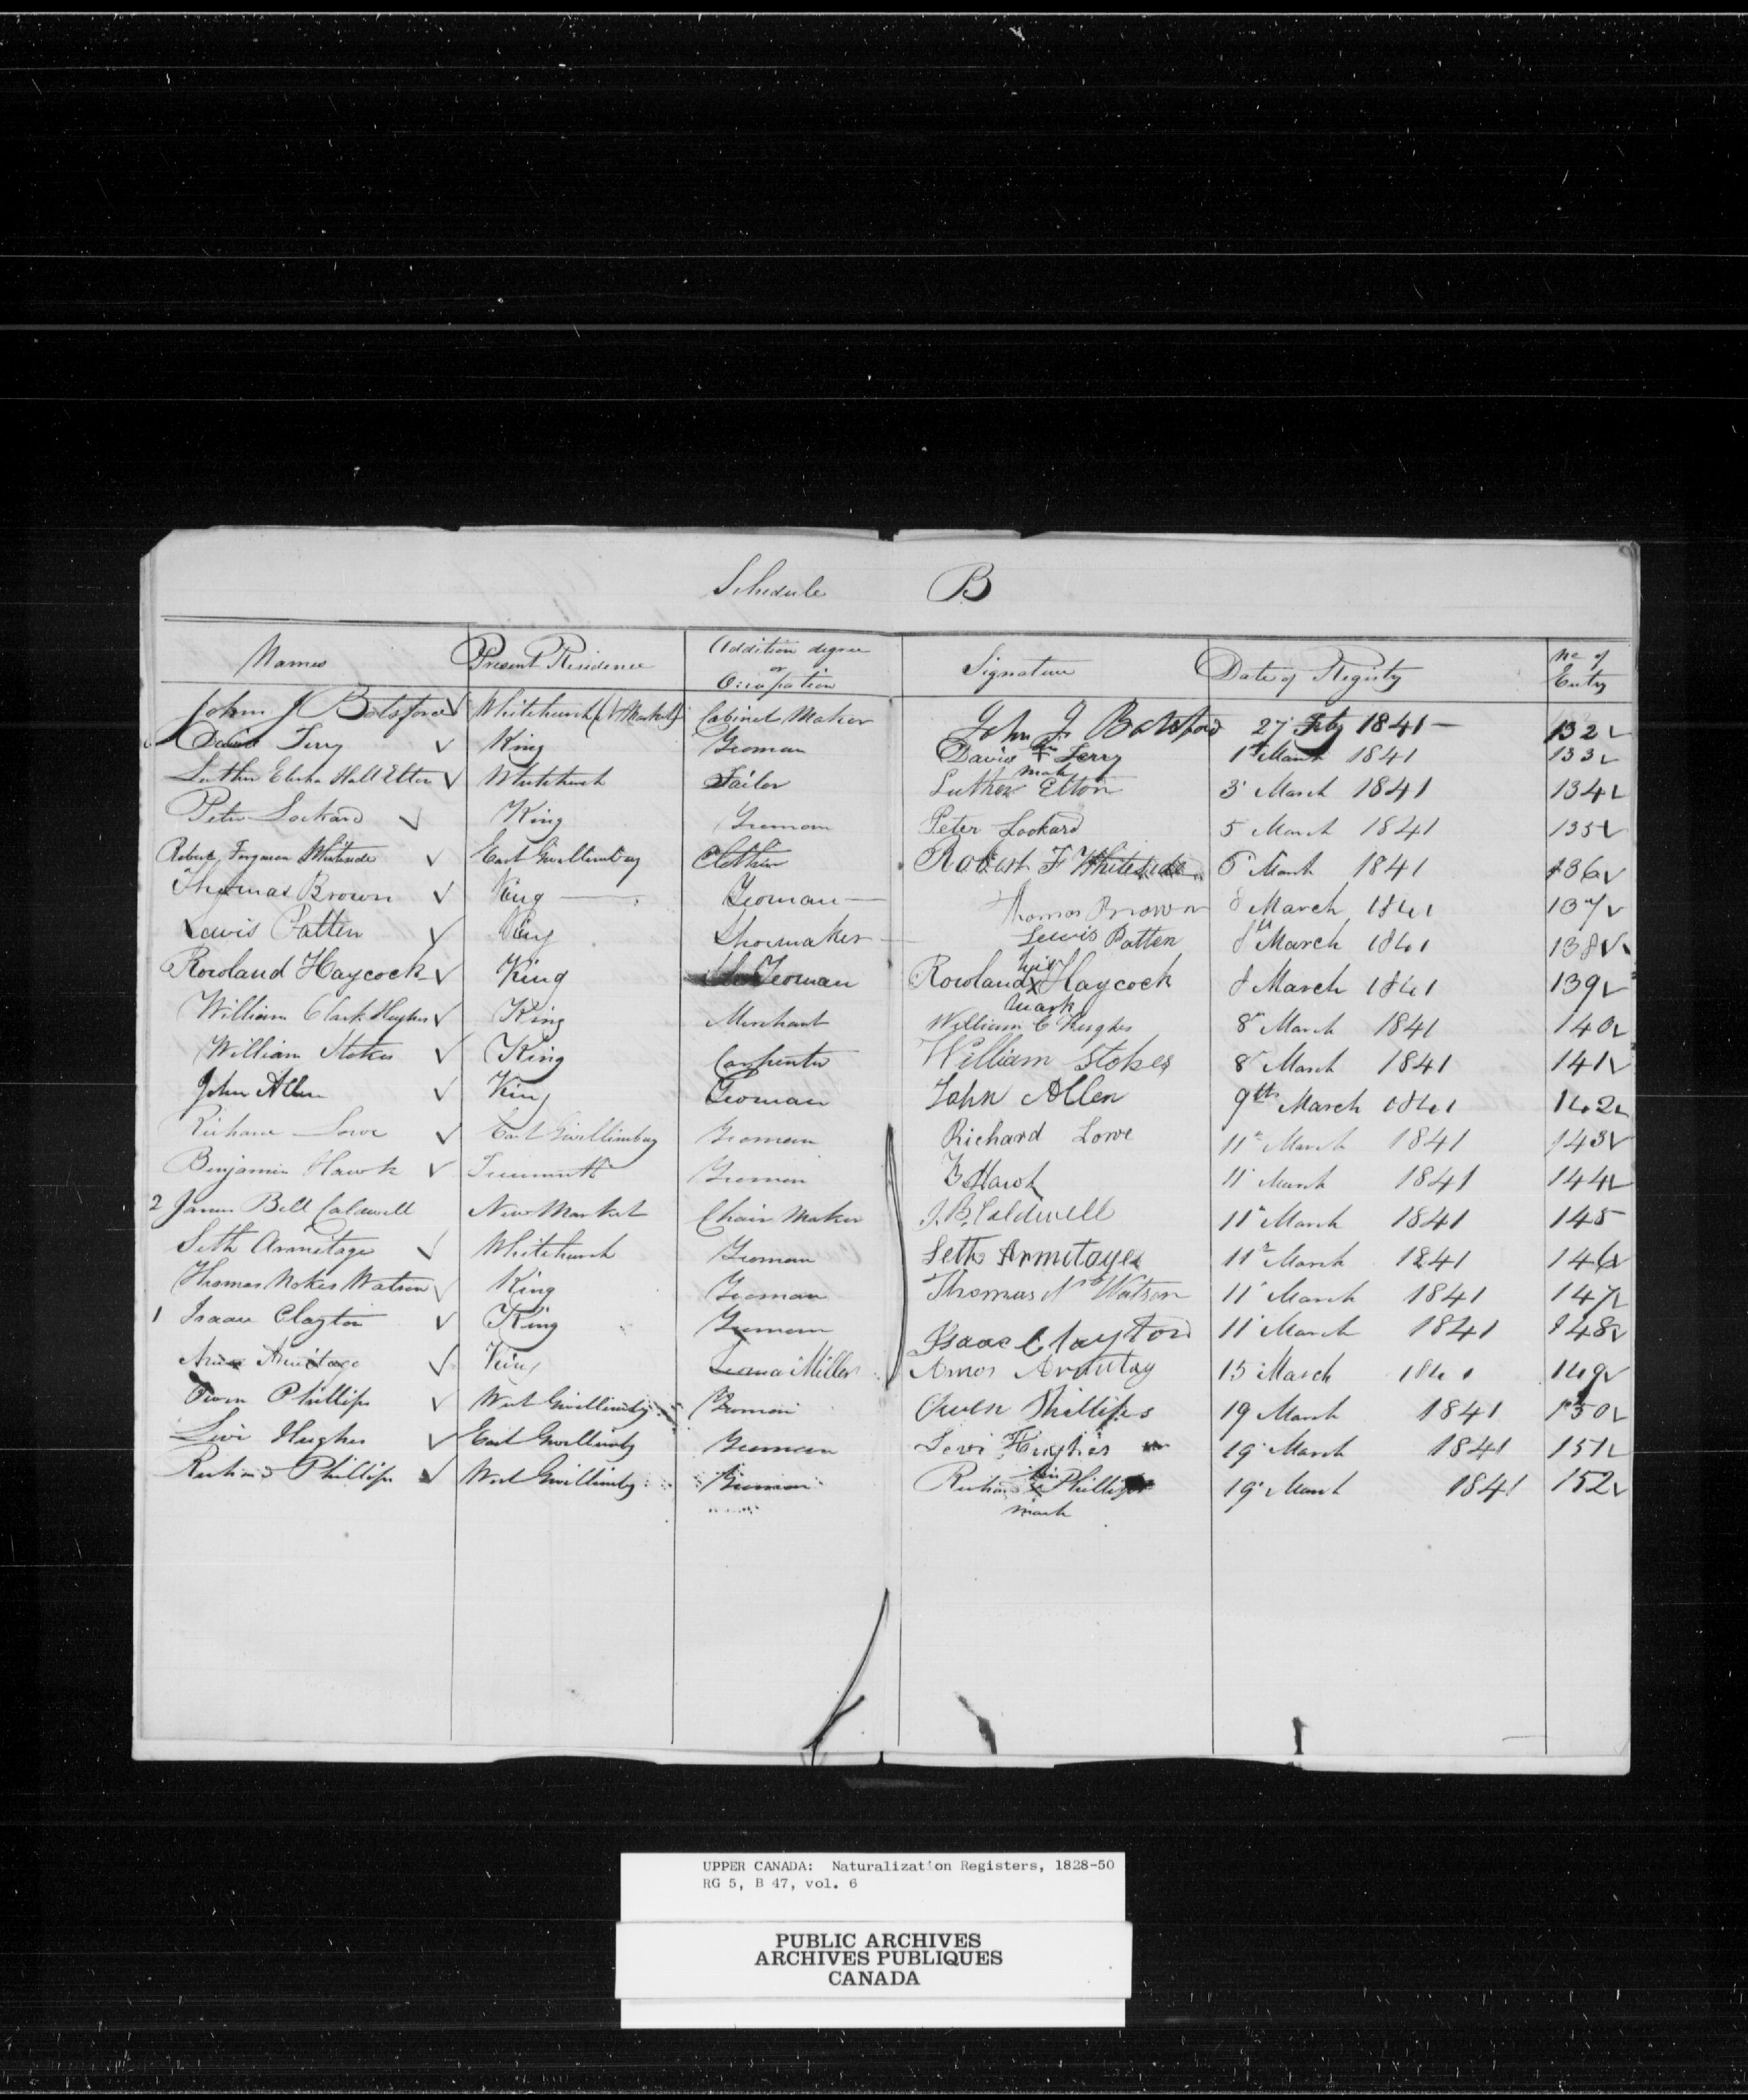 Schedule B
Names Present Residence Addition degree or Occupation Signature Date of Registry No of Entry
John J Botsford √ Whitchurch (N Market) Cabinet Maker John J Botsford 27 Feby 1841 — 132 √
David Terry √ King Yeoman David his + mark Terry 1st March 1841 133 √
Luther Elisha Hall Elton √ Whitchurch Tailor Luther Elton 3 March 1841 134 √
Peter Lockard √ King Yeoman Peter Lockard 5 March 1841 135 √
Robert Ferguson Whiteside √ East Gwillimbury Clothier Robert F Whiteside 6 March 1841 136 √
Thomas Brown √ King — Yeoman — Thomas Brown 8 March 1841 137 √
Lewis Patten √ King Shoemaker — Lewis Patten 8th March 1841 138 √
Rowland Haycock √ King Yeoman Rowland his X mark Haycock 8 March 1841 139 √
William Clark Hughes √ King Merchant William C Hughes 8th March 1841 140 √
William Stokes √ King Carpenter William Stokes 8th March 1841 141 √
John Allen √ King Yeoman John Allen 9th March 1841 142 √
Richard Lowe √ East Gwillimbury Yeoman Richard Lowe 11th March 1841 143 √
Benjamin Hawk √ Yeoman B Hawk 11 March 1841 144 √
2 James Bell Caldwell New Market Chair Maker J. B. Caldwell 11th March 1841 145
Seth Armitage √ Whitchurch Yeoman Seth Armitage 11th March 1841 146
Thomas Nokes Watson √ King Yeoman Thomas Ns Watson 11 March 1841 147 √
1 Isaac Clayton √ King Yeoman Isaac Clayton 11 March 1841 148 √
Amos Armitage √ King Miller Amos Armitag 15 March 1841 149 √
Owen Phillips √ West Gwillimby Yeoman Owen Phillips 19 March 1841 150 √
Levi Hughes √ East Gwillimby Yeoman Levi Hughes 19 March 1841 151 √
Richard Phillips √ West Gwillimby Yeoman Richard his x mark Phillips 19 March 1841 152 √
UPPER CANADA: Naturalization Registers, 1828-50
RG 5, B 47, vol. 6
PUBLIC ARCHIVES
ARCHIVES PUBLIQUES
CANADA